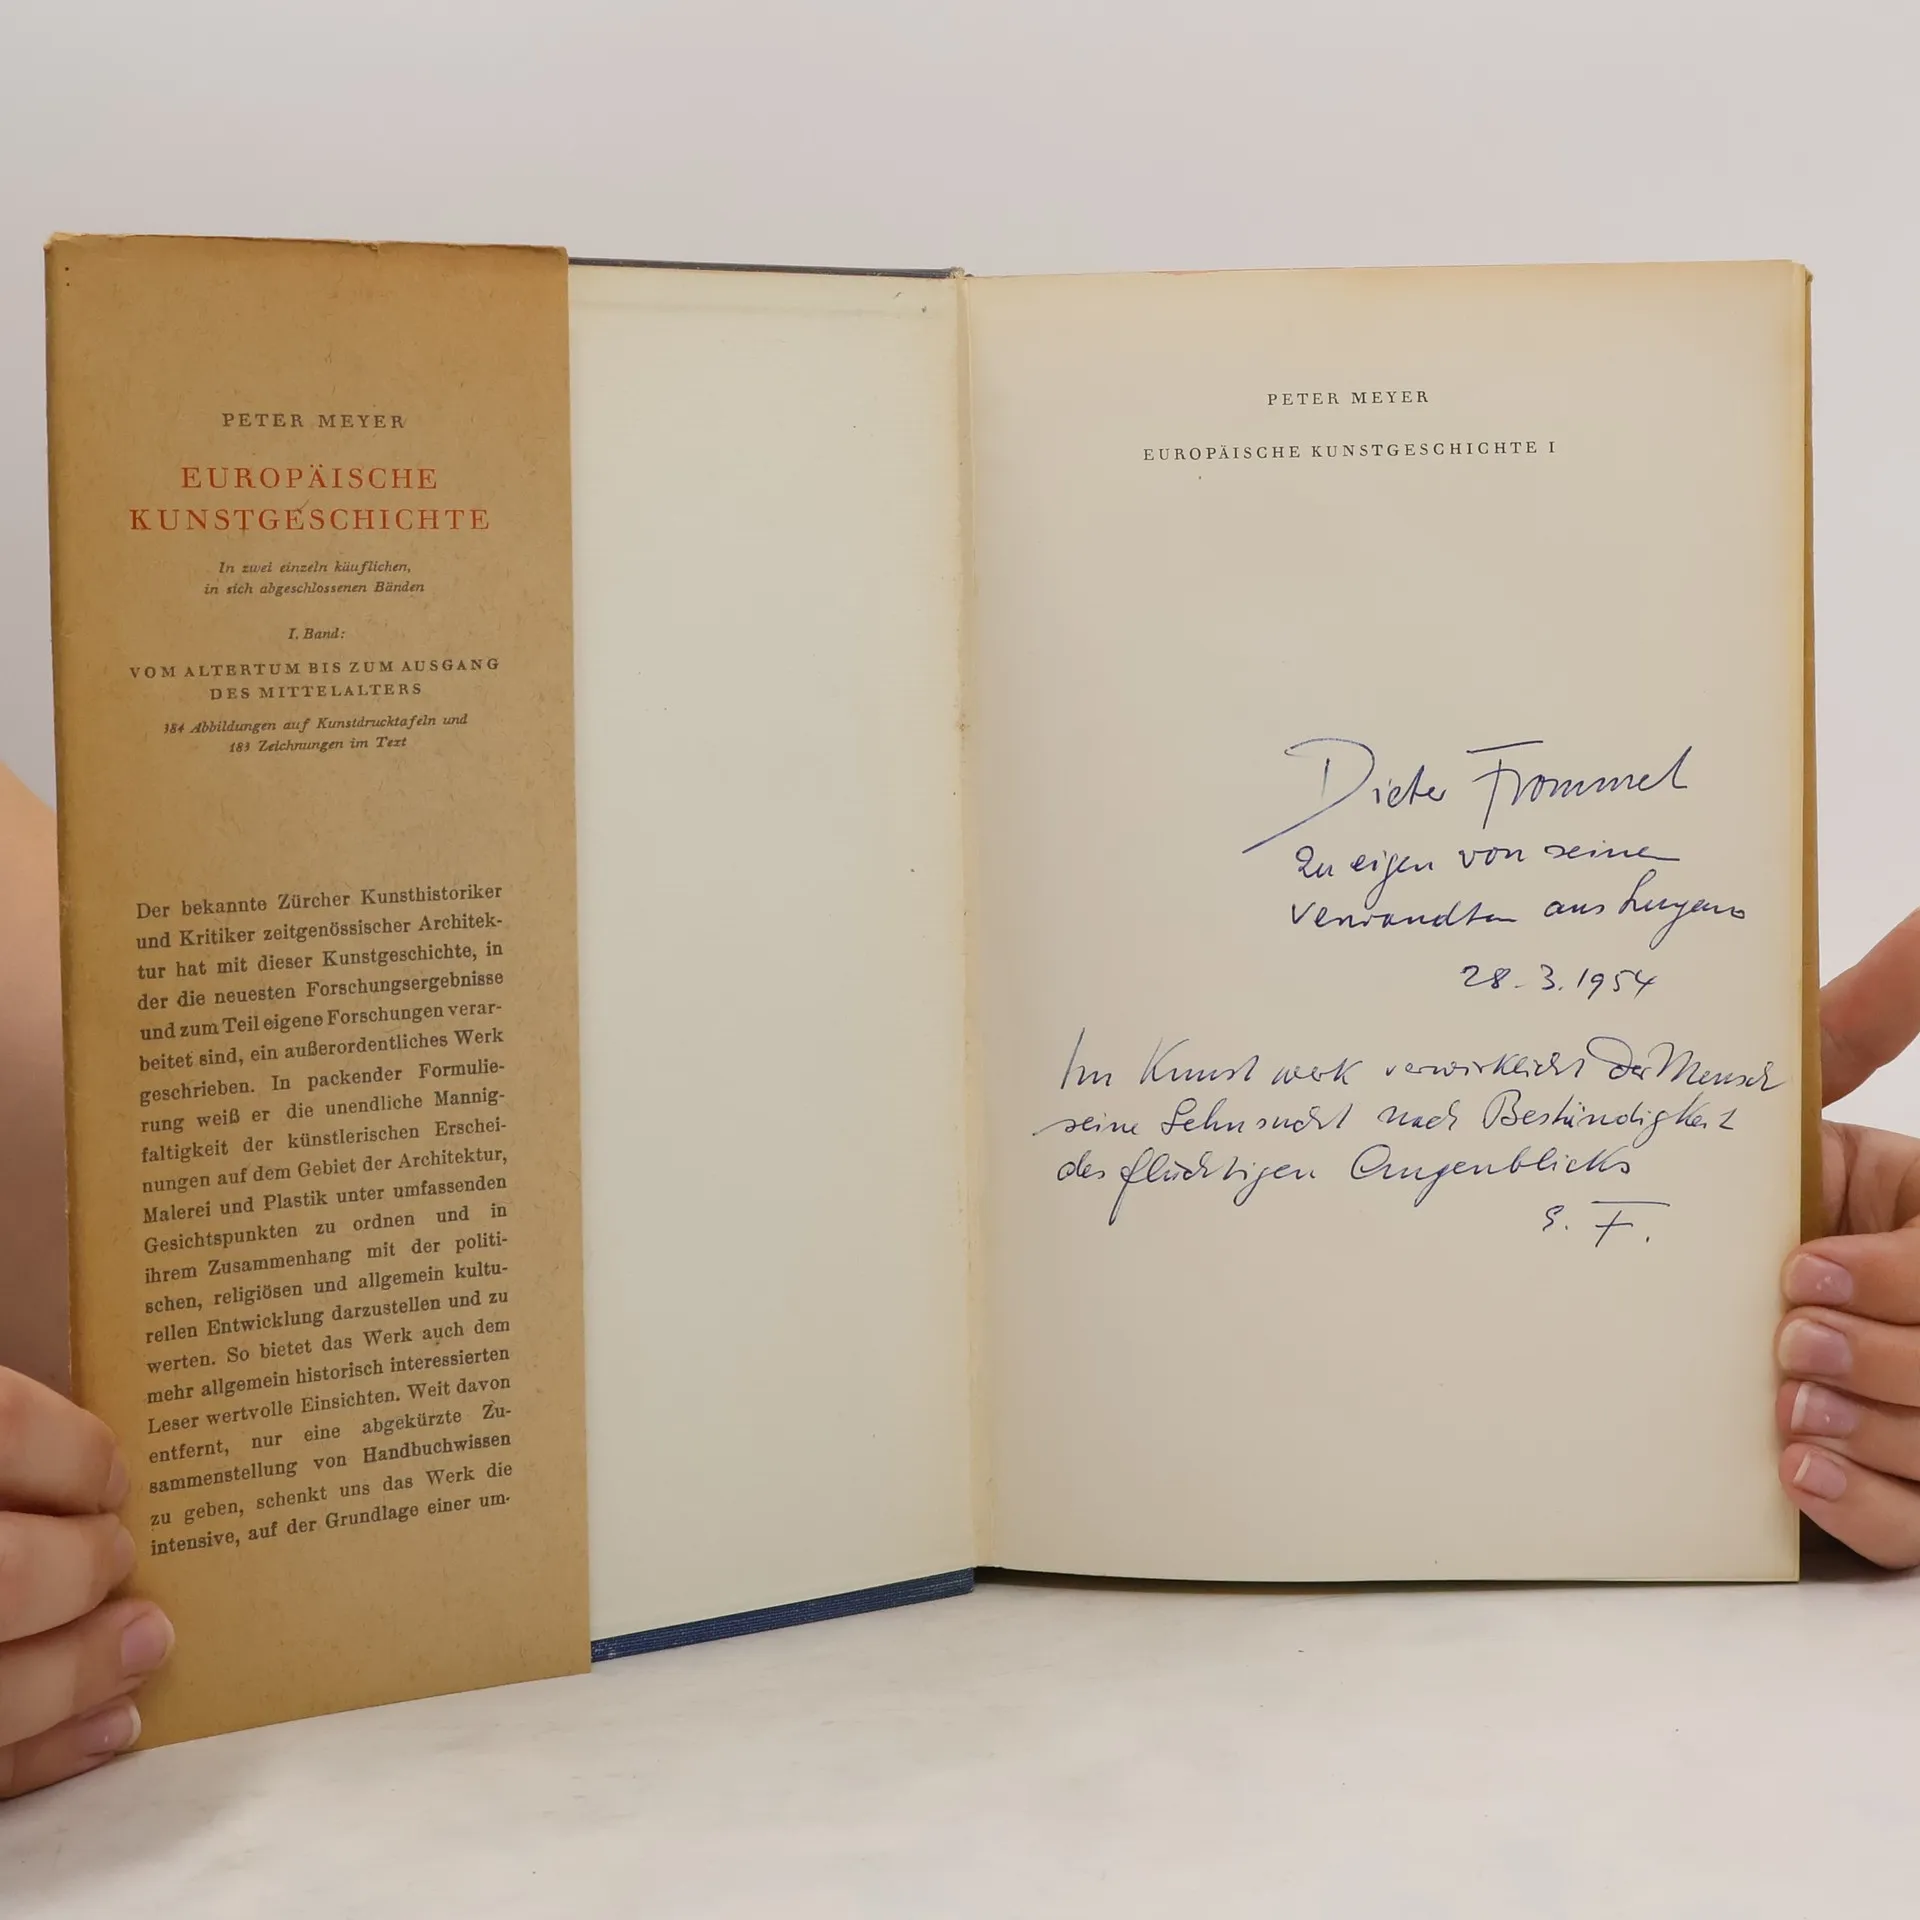 PETER MEYER
EUROPÄISCHE
KUNSTGESCHICHTE
In zwei einzeln käuflichen,
in sich abgeschlossenen Bänden
I. Band:
VOM ALTERTUM BIS ZUM AUSGANG
DES MITTELALTERS
384 Abbildungen auf Kunstdrucktafeln und
183 Zeichnungen im Text
Der bekannte Zürcher Kunsthistoriker
und Kritiker zeitgenössischer Architek-
tur hat mit dieser Kunstgeschichte, in
der die neuesten Forschungsergebnisse
und zum Teil eigene Forschungen verar-
beitet sind, ein außerordentliches Werk
geschrieben. In packender Formulie-
rung weiß er die unendliche Mannig-
faltigkeit der künstlerischen Erschei-
nungen auf dem Gebiet der Architektur,
Malerei und Plastik unter umfassenden
Gesichtspunkten zu ordnen und in
ihrem Zusammenhang mit der politi-
schen, religiösen und allgemein kultu-
rellen Entwicklung darzustellen und zu
werten. So bietet das Werk auch dem
mehr allgemein historisch interessierten
Leser wertvolle Einsichten. Weit davon
entfernt, nur eine abgekürzte Zu-
sammenstellung von Handbuchwissen
zu geben, schenkt uns das Werk die
intensive, auf der Grundlage einer um-
PETER MEYER
EUROPÄISCHE KUNSTGESCHICHTE I
Dieter Frommel
zu eigen von seinen
Verwandten aus Lugano
28. 3. 1954
Im Kunstwerk verwirklicht der Mensch
seine Sehnsucht nach Beständigkeit
des flüchtigen Augenblicks
F.